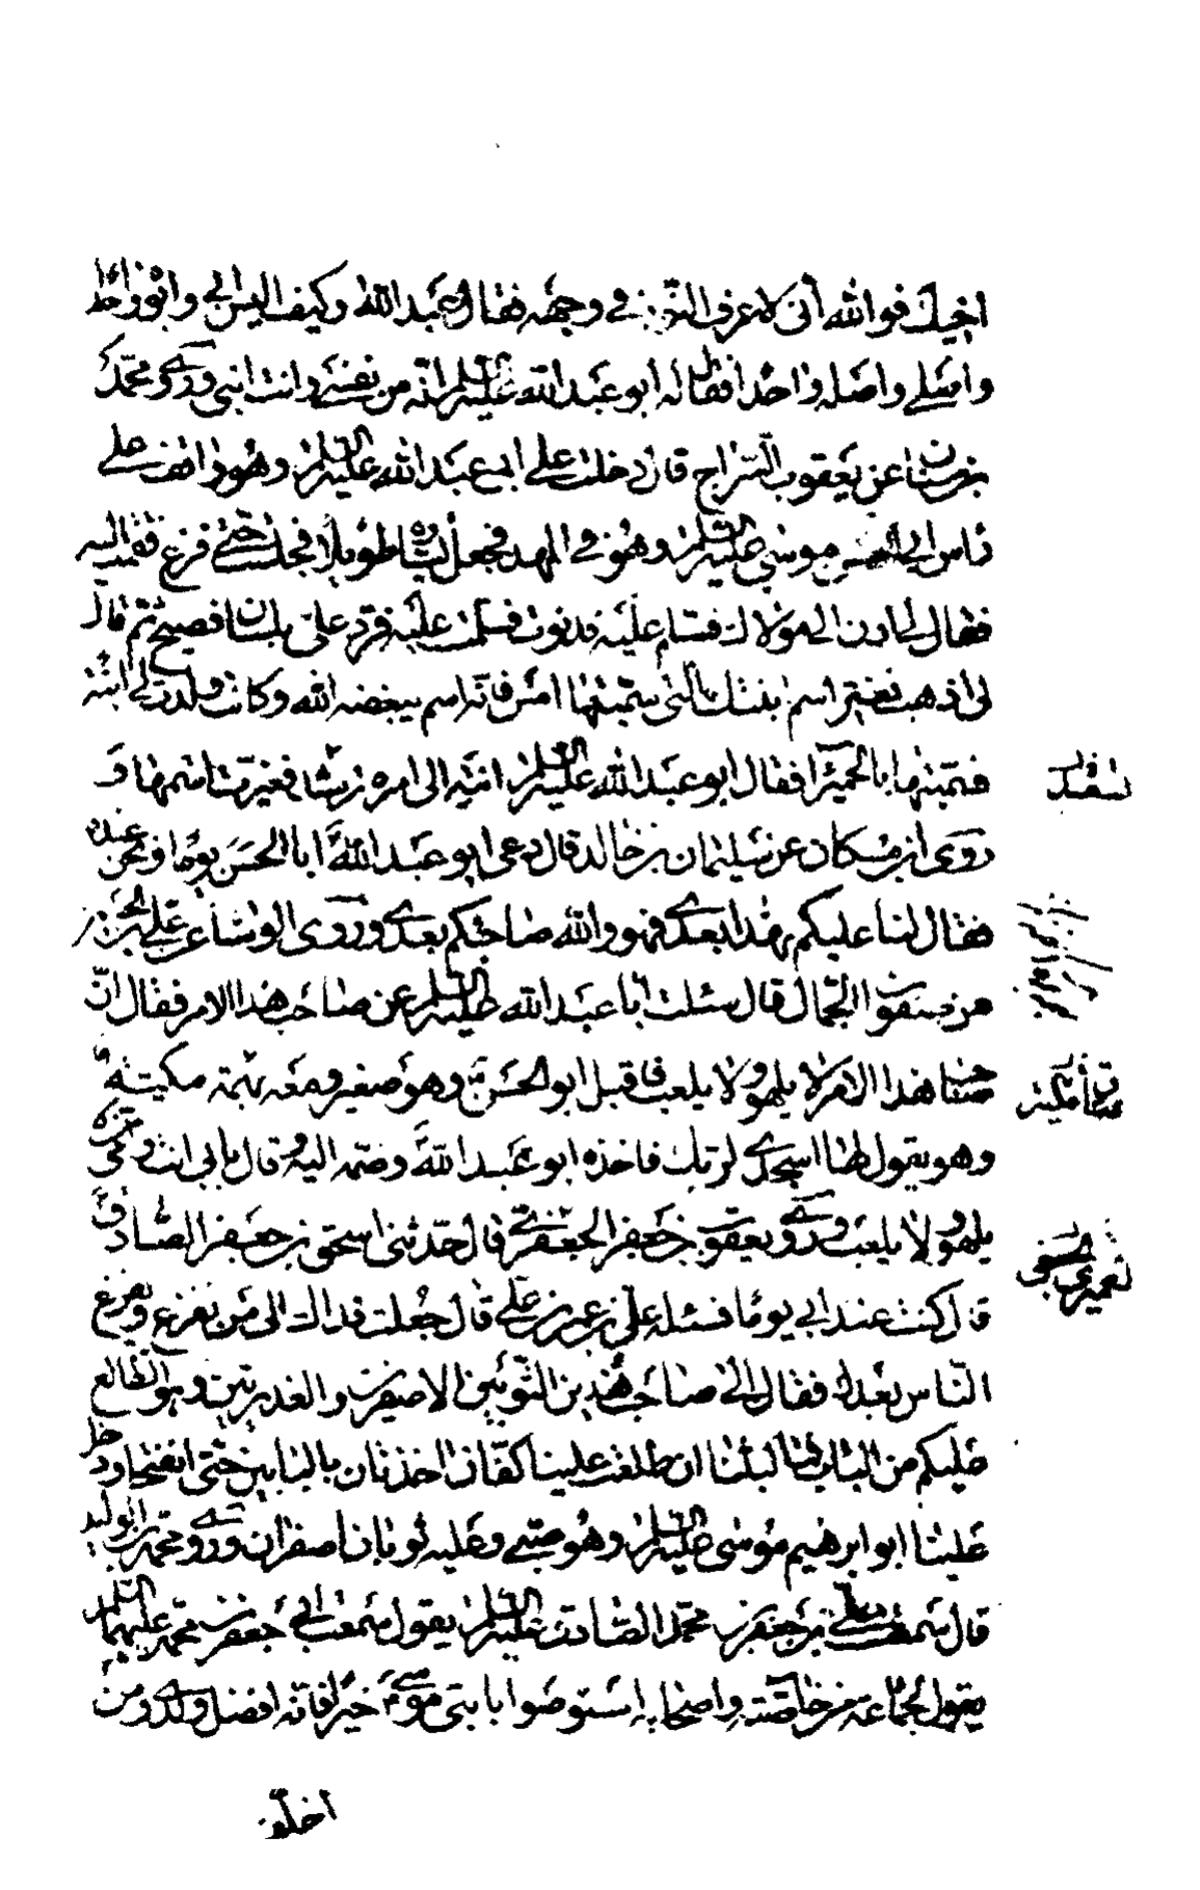 اخيك فوالله انى لاعرف النور فى وجهه فقال عبد الله وكيف اليس ابى وابوه واحدا
واصلى واصله واحدا فقال له ابو عبد الله عليه السلم انه من نفسى وانت ابنى وروى محمد
بن سنان عن يعقوب السراج قال دخلت على ابى عبد الله عليه السلم وهو واقف على
راس ابى الحسن موسى عليه السلم وهو فى المهد فجعل يساره طويلا فجلست حتى فرغ فقمت اليه
فقال لى ادن الى مولاك فسلم عليه فدنوت فسلمت عليه فرد على بلسان فصيح ثم قال
لى اذهب فغير اسم ابنتك التى سميتها امس فانه اسم يبغضه الله وكانت ولدت لى ابنة
فسميتها بالحميرا فقال ابو عبد الله عليه السلم انته الى امره ترشد فغيرت اسمها و
روى ابن مسكان عن سليمان بن خالد قال دعى ابو عبد الله ابا الحسن يوما ونحن عنده
فقال لنا عليكم بهذا بعدى فهو والله صاحبكم بعدى وروى الوشا عن على بن الحسين
عن صفوان الجمال قال سئلت ابا عبد الله عليه السلم عن صاحب هذا الامر فقال ان
صاحب هذا الامر لا يلهو ولا يلعب فاقبل ابو الحسن وهو صغير ومعه بهمة مكية
وهو يقول لها اسجدى لربك فاخذه ابو عبد الله وضمه اليه وقال بابى انت وامى من لا
يلهو ولا يلعب وروى يعقوب بن جعفر الجعفرى قال حدثنى اسحق بن جعفر الصادق
قال كنت عند ابى يوما فسئله على بن عمر بن على قال جعلت فداك الى من نفزع ويفزع
الناس بعدك فقال الى صاحب هذين الثوبين الاصفرين والغديرتين وهو الطالع
عليكم من الباب فما لبثنا ان طلعت علينا كفان اخذتان بالبابين حتى انفتحا ودخل
علينا ابو ابرهيم موسى عليه السلم وهو صبى وعليه ثوبان اصفران وروى محمد بن الوليد
قال سمعت على بن جعفر بن محمد الصادق عليه السلم يقول سمعت ابى جعفر بن محمد عليهما السلم
يقول لجماعة من خاصته واصحابه استوصوا بابنى موسى خيرا فانه افضل ولدى ومن
اخلف